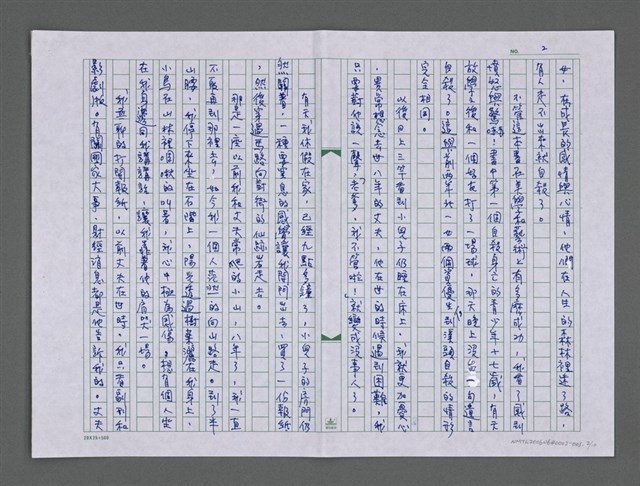 NO. 2
女,在成長的感情與心情,他們在人生的森林裡迷了路,
有人走不出來就自殺了。
不管這本書在美學和藝術上有多麼成功,我看了感到
憤怒與驚嚇!書中第一個自殺身亡的青少年十七歲,有天
放學之後和一個好友打了一場球,那天晚上沒留一句遺言
自殺了。這與前兩年北一女兩個資優生到漢頭自殺的情形
完全相同。
以後早上三竿看到小兒子仍睡在床上,我就更加憂心
,異常想念去世八年的丈夫,他在世的時候遇到困難,我
只要對他說一聲:「老爹,我不管啦!」就變成沒事人了。
有天我休假在家,已經九點多鐘了,小兒子的房門仍
然關著,一種要窒息的感覺讓我開門出去,買了一份報紙
,然後穿過馬路向對街的仙跡岩走去。
那是一座以前我和丈夫常爬的小山,八年了,我一直
不敢再到那裡去,如今我一個人茫然的向山路走。到了半
山腰,我停下來坐在石階上,陽光透過樹葉灑在我身上,
小鳥在山林裡啁啾的叫著,我心中極為感傷。想有個人坐
在我身邊向我講講話,讓我靠著他的肩哭一場。
我無聊的打開報紙,以前丈夫在世時,我只看副刊和
影劇版。有關國家大事、財經消息都是他告訴我的。丈夫
20X25=500